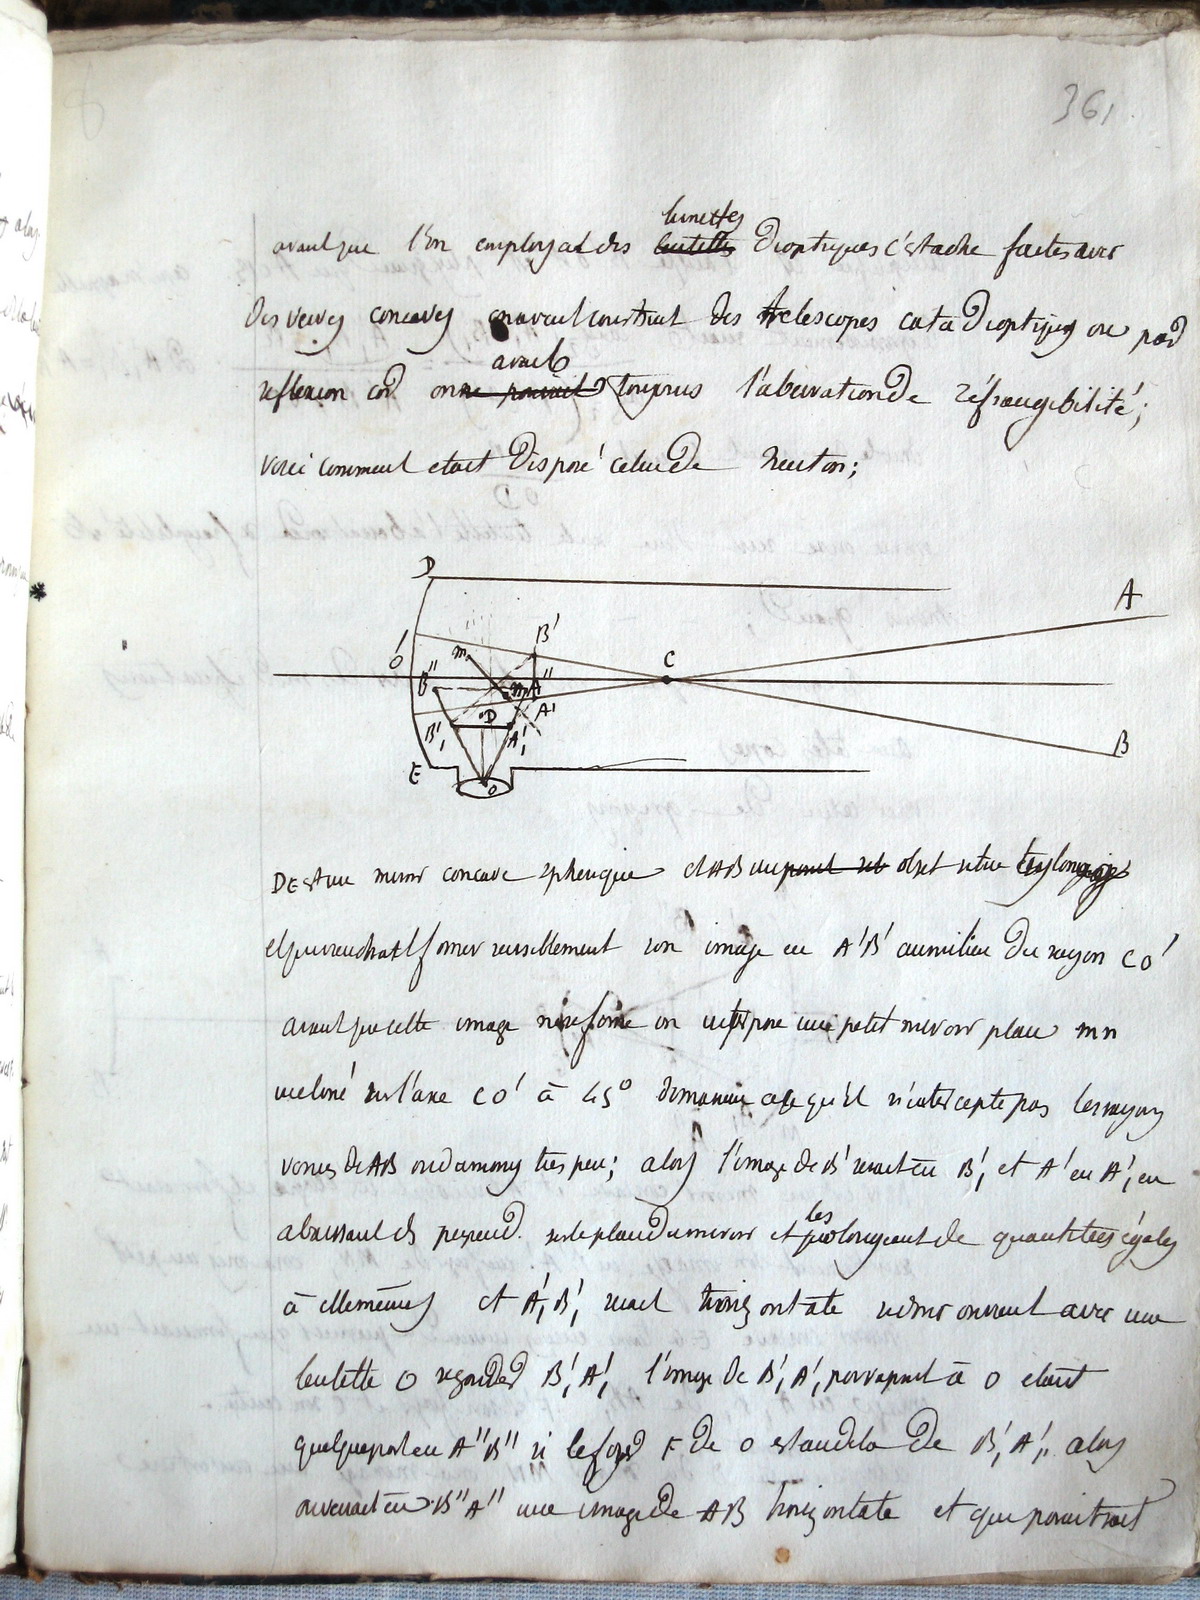 361
lunettes
avant que l'on employat des lentilles Dioptriques c'est a dire faites avec
Des verres concaves on avait construit des telescopes catadioptriques ou par
avait
reflexion car on ne pouvait toujours l'aberration De réfrangibilité;
voici comment etait Disposé celui De Newton;
D
A
B'
O'
m
C
B''
n A''
D
A'
B',
A',
B
E
O
DE est un miroir concave spherique et AB un objet situe
il viendrait former sensiblement son image en A'B' au milieu Du rayon CO'
avant que cette image ne se forme on interpose un petit miroir plan mn
incliné sur l'axe CO' à 45° De maniere a ce qu'il n'intercepte pas les rayons
venus De AB ou du moins tres peu; alors l'image de B' serait en B', et A' en A', en
les
abaissant des perpend. sur le plan Du miroir et prolongeant de quantitées égales
à elles mêmes et A', B', serait horizontale si donc on vient avec une
lentille O regarder B', A', l'image de B', A', par rapport à O etant
quelque part en A''B'' si le foyer F de O est au dela De B', A', alors
on verrait en B''A'' une image De AB horizontale et qui paroitrait